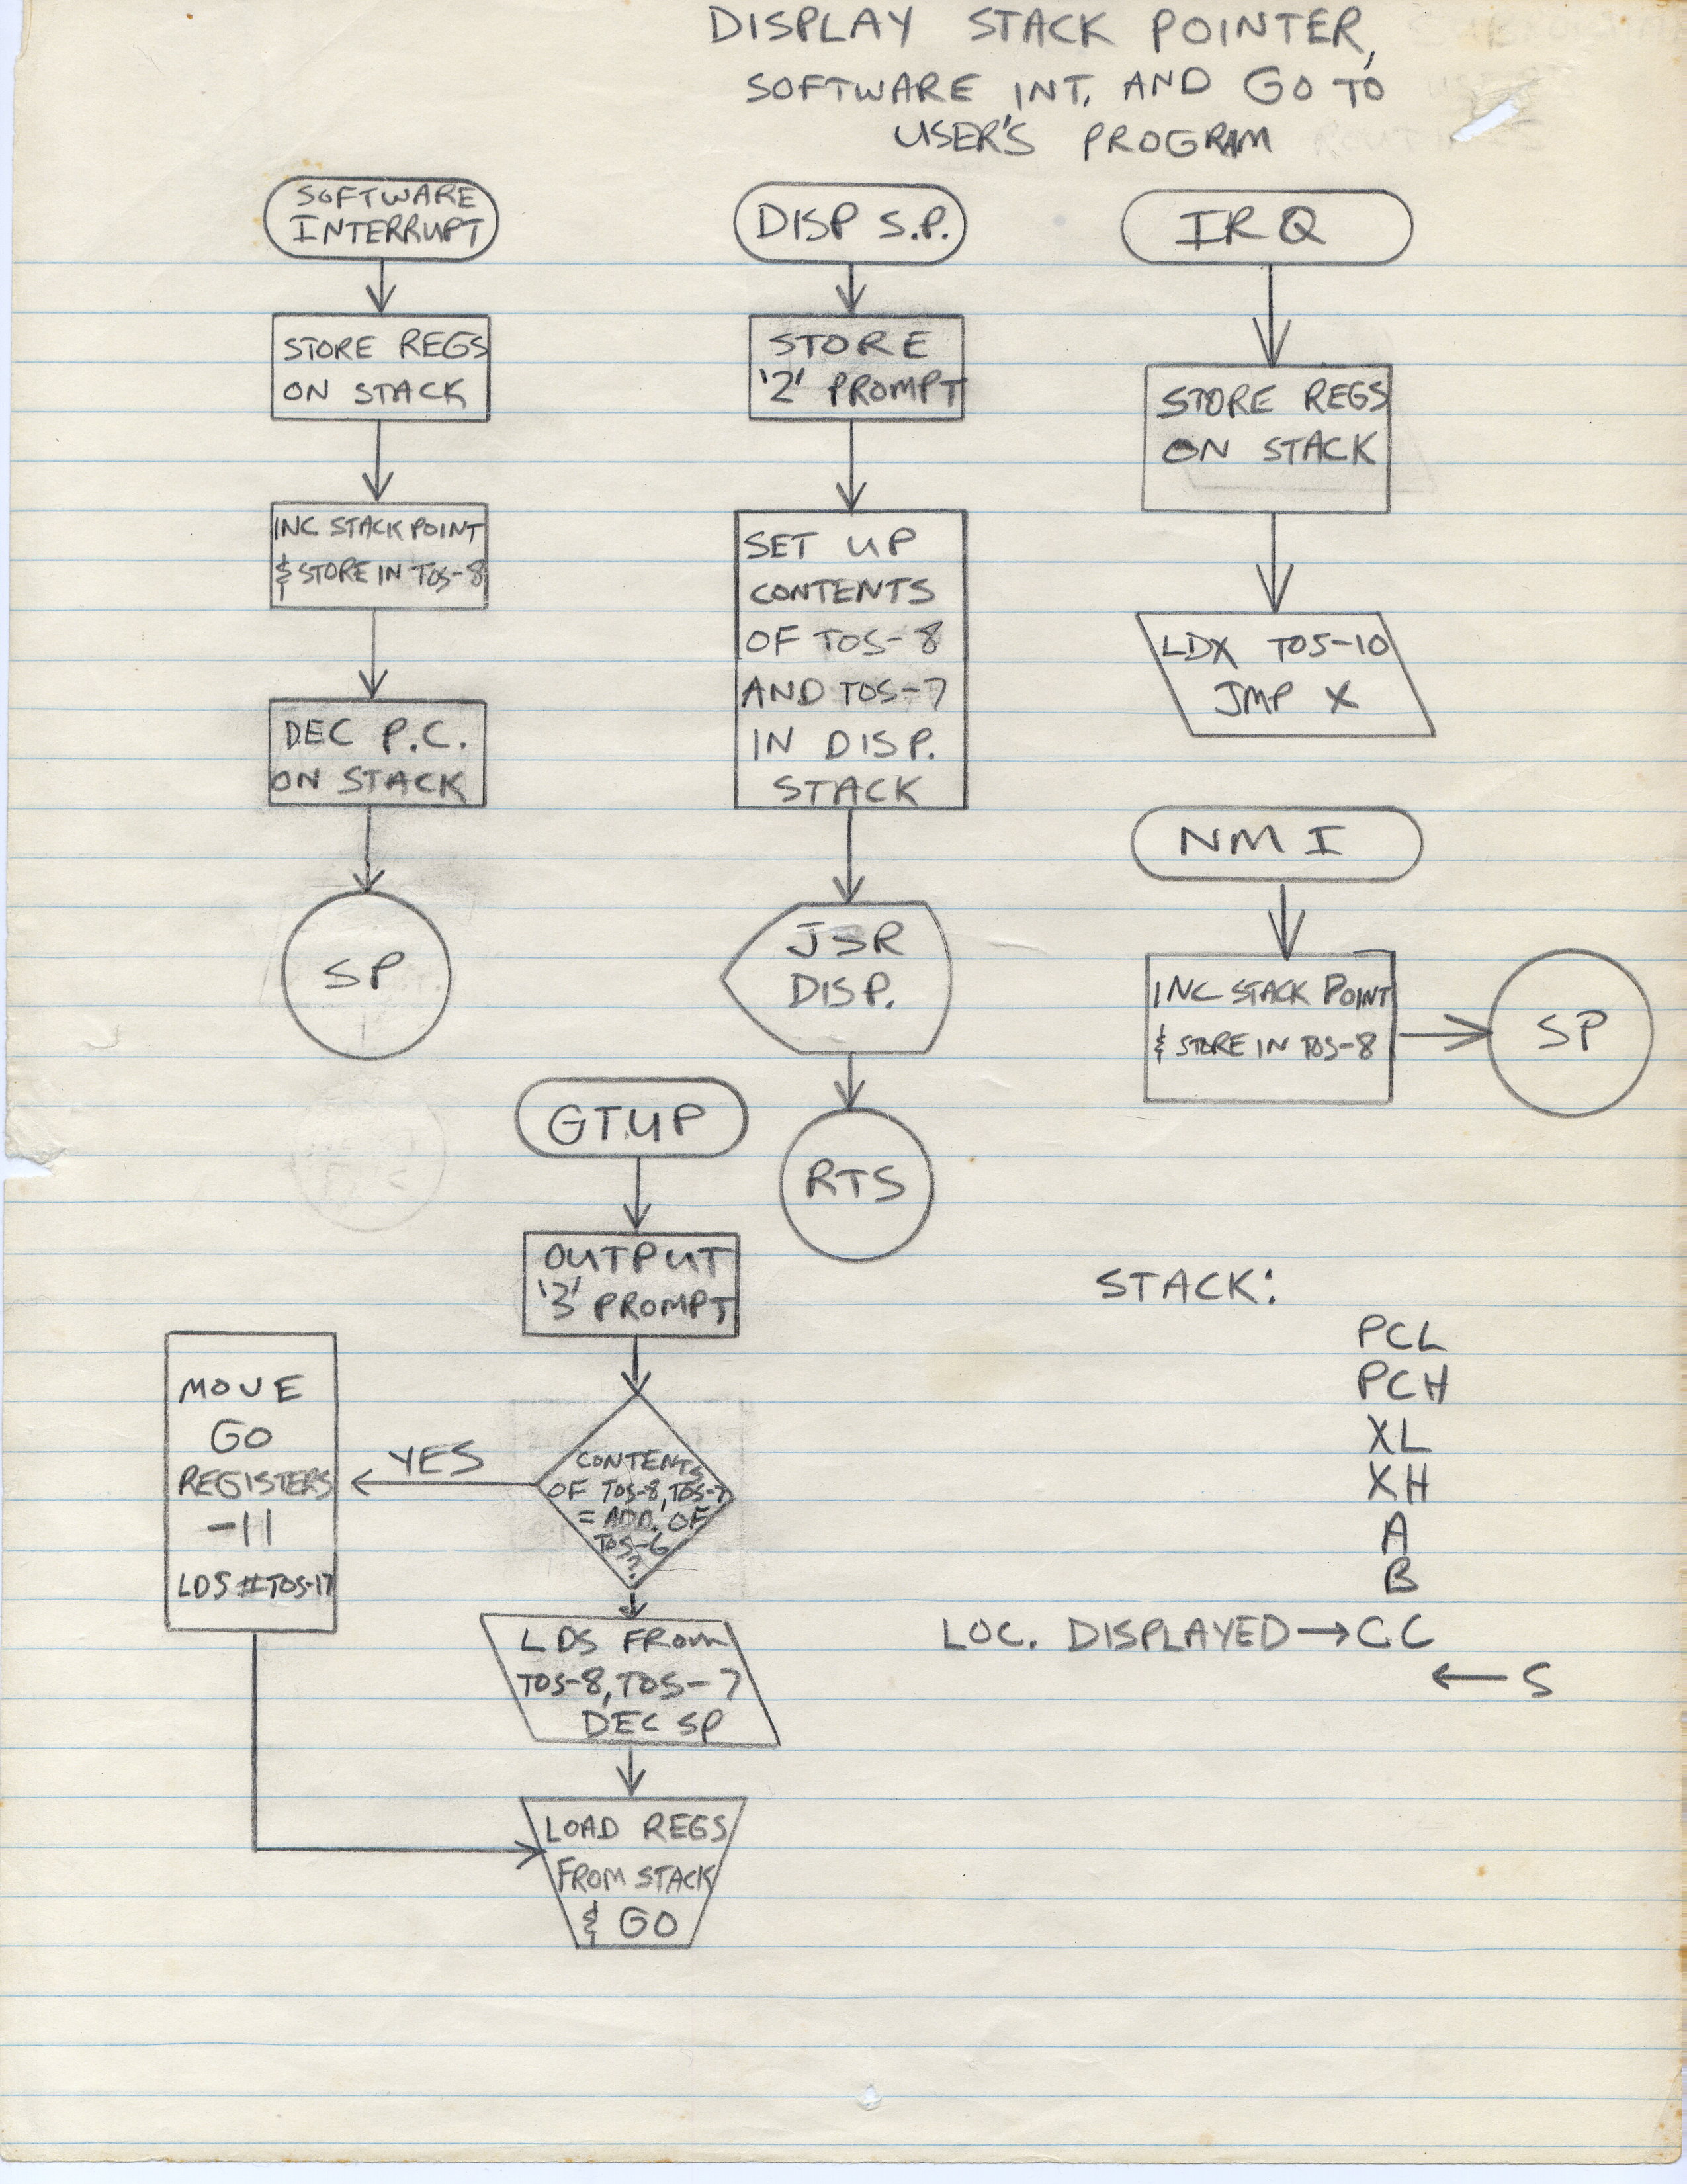 DISPLAY STACK POINTER,
SOFTWARE INT. AND GO TO
USER'S PROGRAM
SOFTWARE
INTERRUPT
STORE REGS
ON STACK
INC STACK POINT
& STORE IN TOS-8
DEC P.C.
ON STACK
SP
DISP S.P.
STORE
'2' PROMPT
SET UP
CONTENTS
OF TOS-8
AND TOS-7
IN DISP.
STACK
JSR
DISP.
RTS
IRQ
STORE REGS
ON STACK
LDX TOS-10
JMP X
NMI
INC STACK POINT
& STORE IN TOS-8
SP
GTUP
OUTPUT
'3' PROMPT
CONTENTS
OF TOS-8, TOS-7
= ADD. OF
TOS-6
?
YES
MOVE
GO
REGISTERS
-11
LDS #TOS-17
LDS FROM
TOS-8, TOS-7
DEC SP
LOAD REGS
FROM STACK
& GO
STACK:
PCL
PCH
XL
XH
A
B
LOC. DISPLAYED → CC
← S